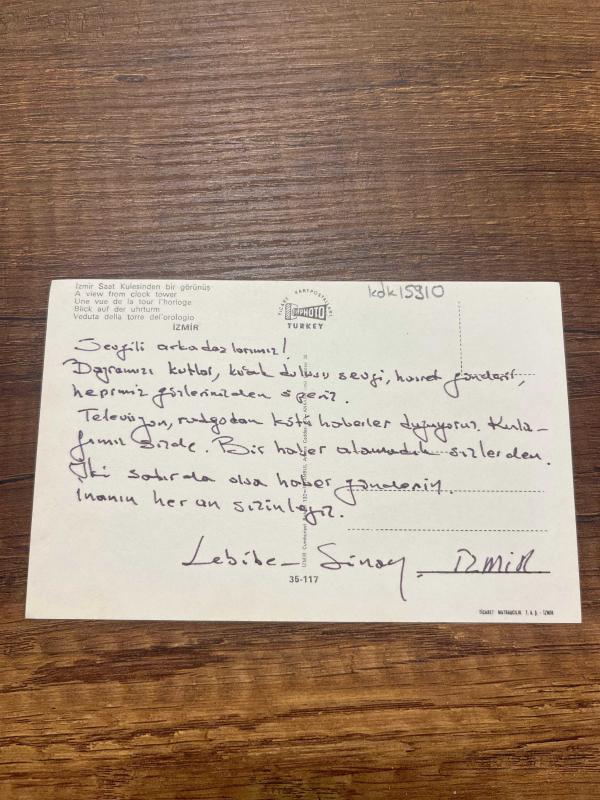 İzmir Saat Kulesinden bir görünüş
A view from clock tower
Une vue de la tour l'horloge
Blick auf der uhrturm
Veduta della torre del'orologio
İZMİR
TİCARET KARTPOSTALLARI
PHOTO
TURKEY
kdk15910
Sevgili arkadaşlarımız!
Bayramınızı kutlar, kucak dolusu sevgi, hasret gönderir,
hepiniz gözlerinizden öperiz.
Televizyon, radyodan kötü haberler duyuyoruz. Kula-
ğımız sizde. Bir haber alamadık sizlerden.
İki satırda olsa haber gönderin.
İnanın her an sizinleyiz.
Lebibe - Sinay. İZMİR
35-117
TİCARET MATBAACILIK T.A.Ş. - İZMİR